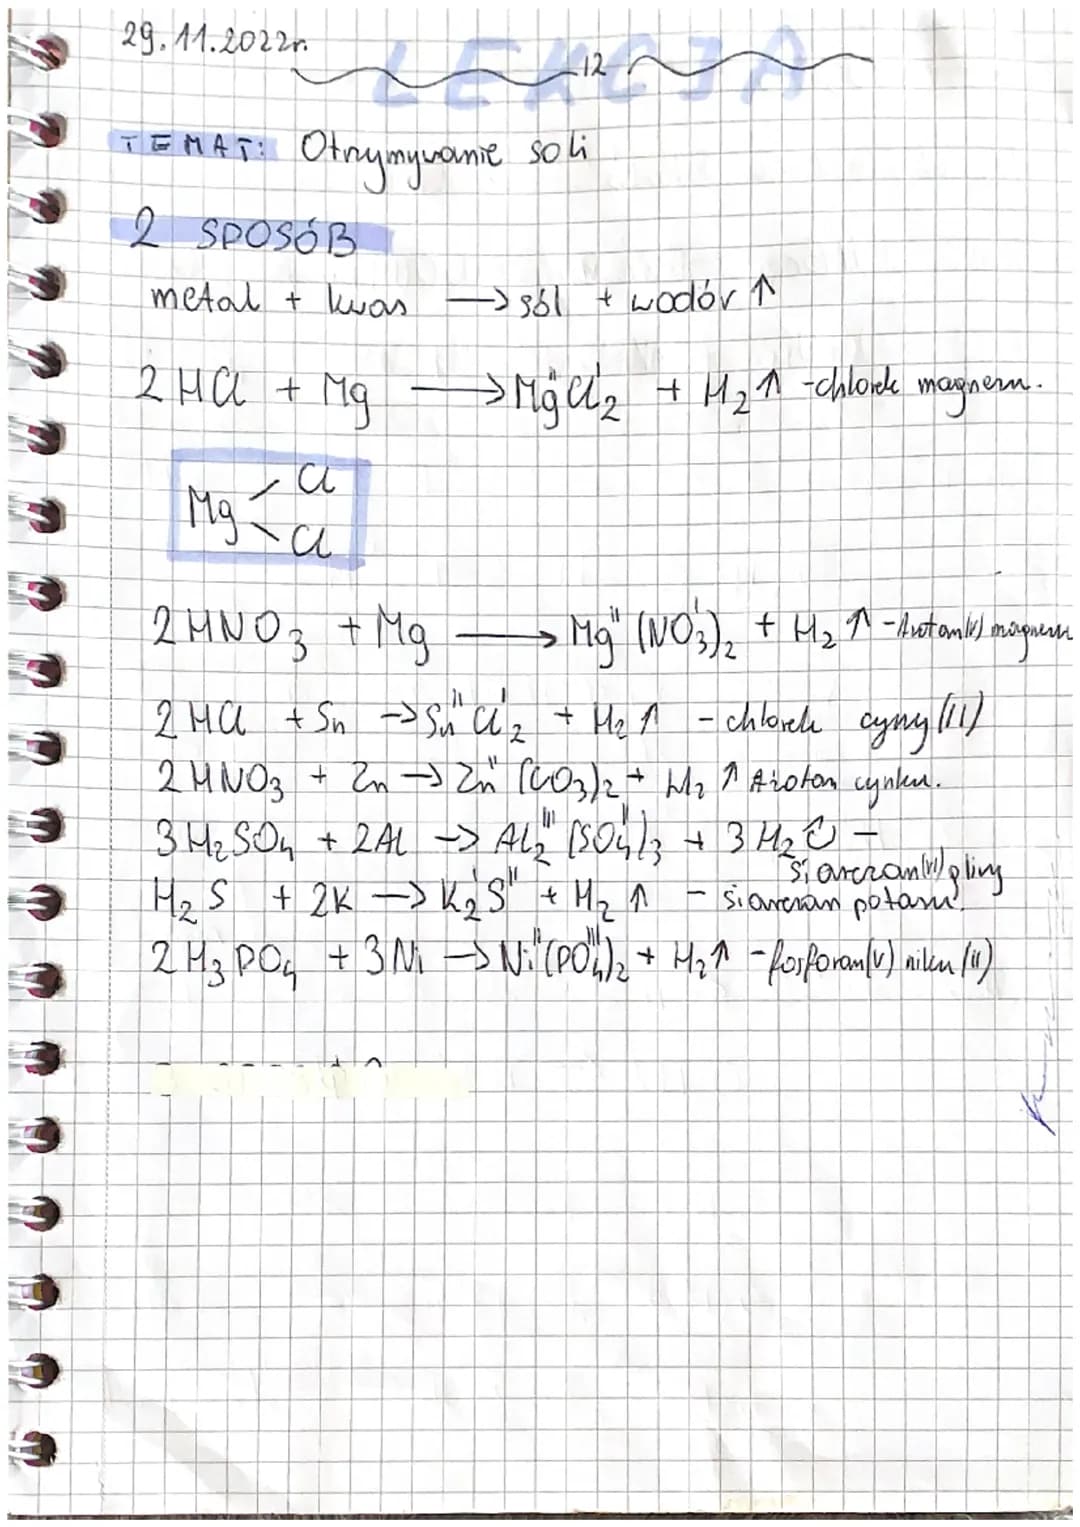 29.11.2022r.
LEKCJA 12
TEMAT: Otrzymywanie soli
2 SPOSÓB
metal + kwas → sól + wodór ↑
2 HCl + Mg → Mg^II Cl^I_2 + H_2 ↑ - chlorek magnezu.
Mg
Cl
Cl
2 HNO_3 + Mg → Mg^II (NO_3)^I_2 + H_2 ↑ - Azotan(V) magnezu
2 HCl + Sn → Sn^II Cl^I_2 + H_2 ↑ - chlorek cyny (II)
2 HNO_3 + Zn → Zn^II (CO_3)_2 + H_2 ↑ Azotan cynku.
3 H_2SO_4 + 2Al → Al_2^III (SO_4)^II_3 + 3 H_2 ↑ -
siarczan(VI) gliny
H_2S + 2K → K_2^I S^II + H_2 ↑ - siarczan potasu.
2 H_3PO_4 + 3 Ni → Ni^II (PO_4)^III_2 + H_2 ↑ - fosforan(V) niklu (II)